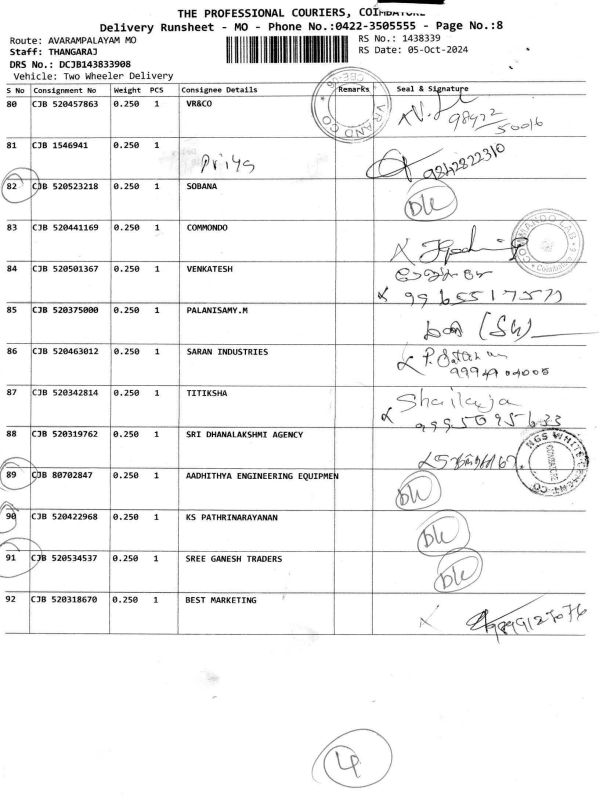 THE PROFESSIONAL COURIERS, COIMBATORE
Delivery Runsheet - MO - Phone No.:0422-3505555 - Page No.:8
Route: AVARAMPALAYAM MO
RS No.: 1438339
Staff: THANGARAJ
RS Date: 05-Oct-2024
DRS No.: DCJB143833908
Vehicle: Two Wheeler Delivery
S No Consignment No Weight PCS Consignee Details Remarks Seal & Signature
80 CJB 520457863 0.250 1 VR&CO
VR AND CO
98422
50016
81 CJB 1546941 0.250 1
Priya
9842822310
82 CJB 520523218 0.250 1 SOBANA
83 CJB 520441169 0.250 1 COMMONDO
Coimbatore
84 CJB 520501367 0.250 1 VENKATESH
85 CJB 520375000 0.250 1 PALANISAMY.M
86 CJB 520463012 0.250 1 SARAN INDUSTRIES
87 CJB 520342814 0.250 1 TITIKSHA
Shailaja
99950 95633
88 CJB 520319762 0.250 1 SRI DHANALAKSHMI AGENCY
NGS WHITE CEMENT CO
COIMBATORE
89 CJB 80702847 0.250 1 AADHITHYA ENGINEERING EQUIPMEN
90 CJB 520422968 0.250 1 KS PATHRINARAYANAN
91 CJB 520534537 0.250 1 SREE GANESH TRADERS
92 CJB 520318670 0.250 1 BEST MARKETING
4